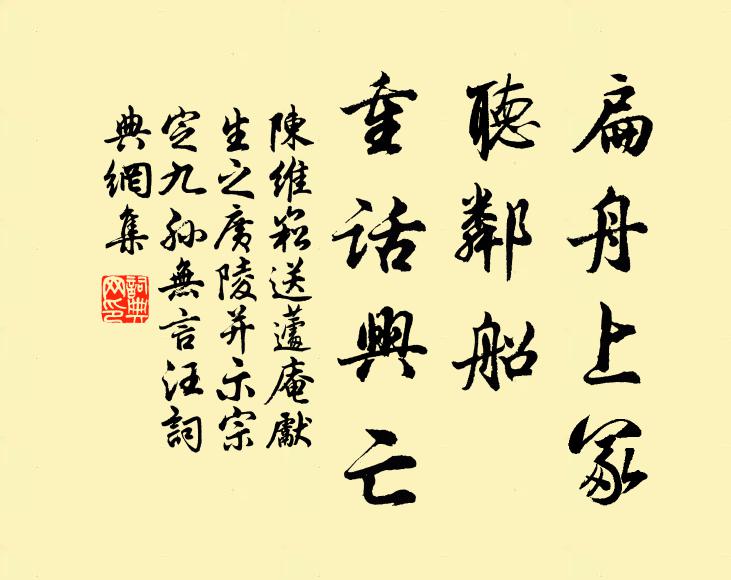 扁舟上冢
聽鄰船
重話興亡
陳維崧送蘧庵獻
生之廣陵并示宗
定九孫無言汪詞
典網集
詞典
网印